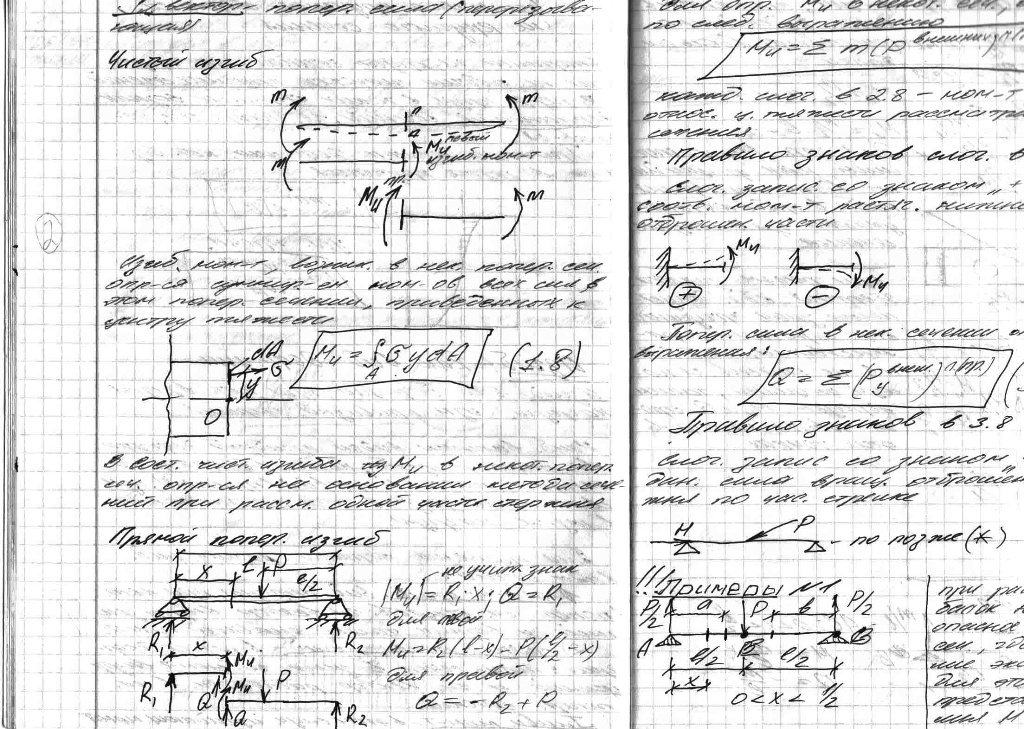 попер. сила (перерезыва-
ющая)
Чистый изгиб
m
m
n
Mи
левый
изгиб. мом-т
m
пр.
Mи
m
2
Изгиб. мом-т, возник. в нек. попер. сеч.
опр-ся суммир-ем мом. об всех сил в
этом попер. сечении, приведенных к
центру тяжести
dA
σ
y
O
Mи = ∫ σ y dA
A
(1.8)
В сост. чист. изгиба Mи в некот. попер.
сеч. опр-ся на основании метода сече-
ний при рассм. одной части стержня
Прямой попер. изгиб
x
l
P
l/2
R1
R2
не учит. знак
|Mи| = R1·x; Q = R1
для левой
Mи = R2(l-x) - P(l/2-x)
для правой
Q = -R2 + P
x
Mи
R1
Q
Mи
P
Q
R2
опр. Mи в некот. сеч.,
по след. выражению
Mи = Σ m(P внешних)
кажд. слог. в 2.8 – мом-т
относ. ц. тяжести
сечения
Правило знаков слог. в
Слог. запис. со знаком „+
соотв. мом-т растяг.
отброшен. части
Mи
+
Mи
−
Попер. сила в нек. сечении
выражения:
Q = Σ (Py внеш.) л(пр.)
Правило знаков в 3.8
слог. запис со знаком
дан. сила вращ.
жня по час. стрелке
H
P
- по позже (*)
!!! Примеры N1
P/2
a
P
b
P/2
A
B
l/2
l/2
x
0 < x < l/2
при
балок
опасна
сеч.,
для